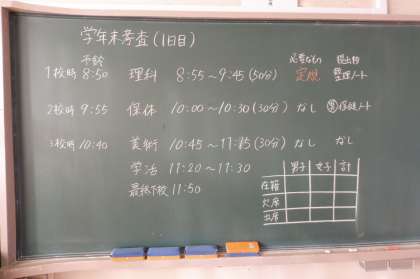 学年末考査(1日目)
予鈴 必要なもの 提出物
1校時 8:50 理科 8:55~9:45(50分) 定規 整理ノート
2校時 9:55 保体 10:00~10:30(30分) なし 男保健ノート
3校時 10:40 美術 10:45~11:15(30分) なし なし
学活 11:20~11:30
最終下校 11:50
男子 女子 計
在籍
欠席
出席